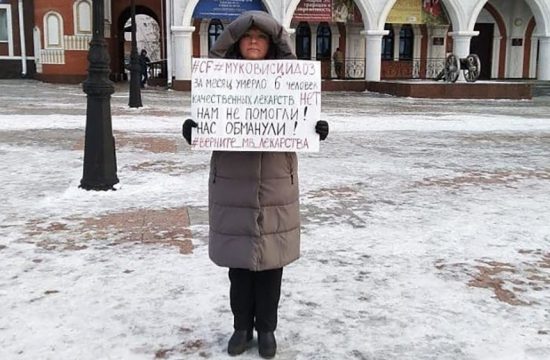 #CF #МУКОВИСЦИДОЗ
ЗА МЕСЯЦ УМЕРЛО 6 ЧЕЛОВЕК
КАЧЕСТВЕННЫХ ЛЕКАРСТВ НЕТ
НАМ НЕ ПОМОГЛИ!
НАС ОБМАНУЛИ!
#ВЕРНИТЕ_МВ_ЛЕКАРСТВА